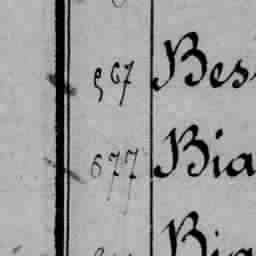 567 Bes
677 Bia